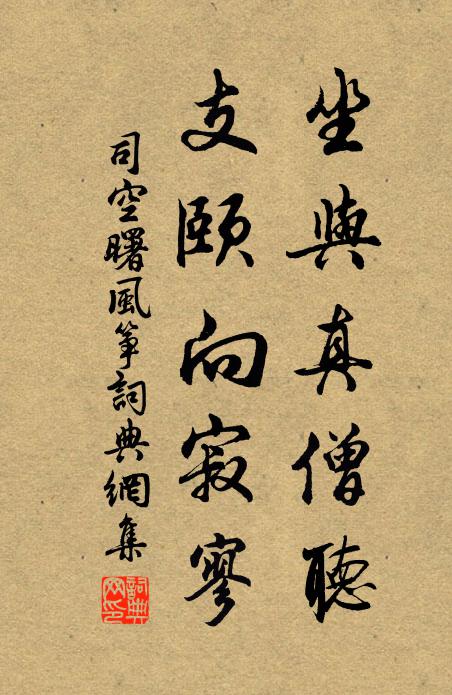 坐與真僧聽
支頤向寂寥
司空曙風箏詞典網集
詞典網印